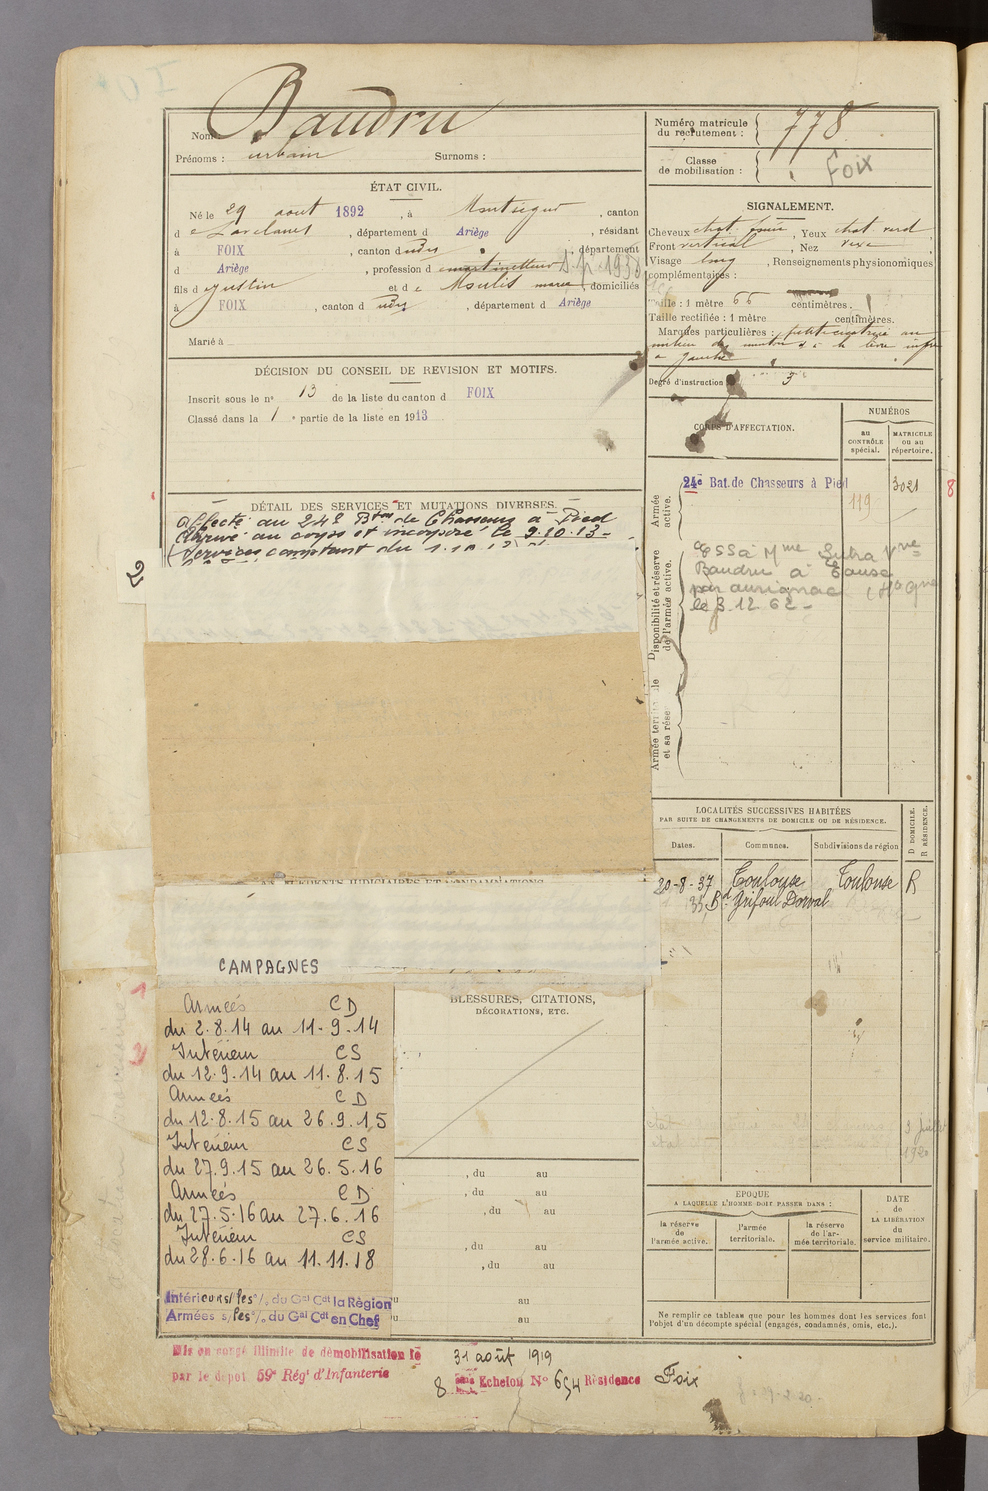 Nom : Baudru
Prénoms : urbain Surnoms :
ÉTAT CIVIL.
Né le 29 aout 1892, à Montségur, canton
d e Lavelanet, département d Ariège, résidant
à FOIX, canton d udit, département
d Ariège, profession d
fils d e Justin et d e Moulis marie, domiciliés
à FOIX, canton d udit, département d Ariège
Marié à
DÉCISION DU CONSEIL DE REVISION ET MOTIFS.
Inscrit sous le n° 13 de la liste du canton d FOIX
Classé dans la 1e partie de la liste en 1913
DÉTAIL DES SERVICES ET MUTATIONS DIVERSES.
Affecté au 24e Bton de Chasseurs à Pied
Arrivé au corps et incorporé le 9.10.13-
Services comptant du 1.10.13
CAMPAGNES
Armées CD
du 2.8.14 au 11-9-14
Intérieur CS
du 12.9.14 au 11.8.15
Armées CD
du 12.8.15 au 26.9.15
Intérieur CS
du 27.9.15 au 26.5.16
Armées CD
du 27.5.16 au 27.6.16
Intérieur CS
du 28.6.16 au 11.11.18
Intérieurs/les°/. du Gal Cdt la Région
Armées s/les°/. du Gal Cdt en Chef
BLESSURES, CITATIONS,
DÉCORATIONS, ETC.
, du au
, du au
, du au
, du au
, du au
au
au
Mis en congé illimité de démobilisation le 31 août 1919
par le dépôt 59e Régt d'Infanterie
8 Echelon N° 654 Résidence Foix
Numéro matricule
du recrutement : 778
Classe
de mobilisation : Foix
SIGNALEMENT.
Cheveux chat. foncé, Yeux chat verd
Front vertical, Nez vexe
Visage long, Renseignements physionomiques
complémentaires :
Taille : 1 mètre 66 centimètres.
Taille rectifiée : 1 mètre centimètres.
Marques particulières : petite cicatrice au
milieu du menton et à la lèvre infre
à gauche
Degré d'instruction : 3
CORPS D'AFFECTATION.
NUMÉROS
au CONTRÔLE spécial.
MATRICULE ou au répertoire.
Armée active.
24e Bat. de Chasseurs à Pied 119 3021
8
Disponibilité et réserve de l'armée active.
Mme Vve
Baudru à
par aurignac (Hte Gne
le 3.12.62-
Armée territoriale et sa réserve
LOCALITÉS SUCCESSIVES HABITÉES
PAR SUITE DE CHANGEMENTS DE DOMICILE OU DE RÉSIDENCE.
D DOMICILE.
R RÉSIDENCE.
Dates. Communes. Subdivisions de région
20-8-37 Toulouse Toulouse R
35, Bd Grifoul Dorval
EPOQUE
A LAQUELLE L'HOMME DOIT PASSER DANS :
DATE
de
LA LIBÉRATION
du
service militaire.
la réserve de l'armée active.
l'armée territoriale.
la réserve de l'armée territoriale.
Ne remplir ce tableau que pour les hommes dont les services font
l'objet d'un décompte spécial (engagés, condamnés, omis, etc.).